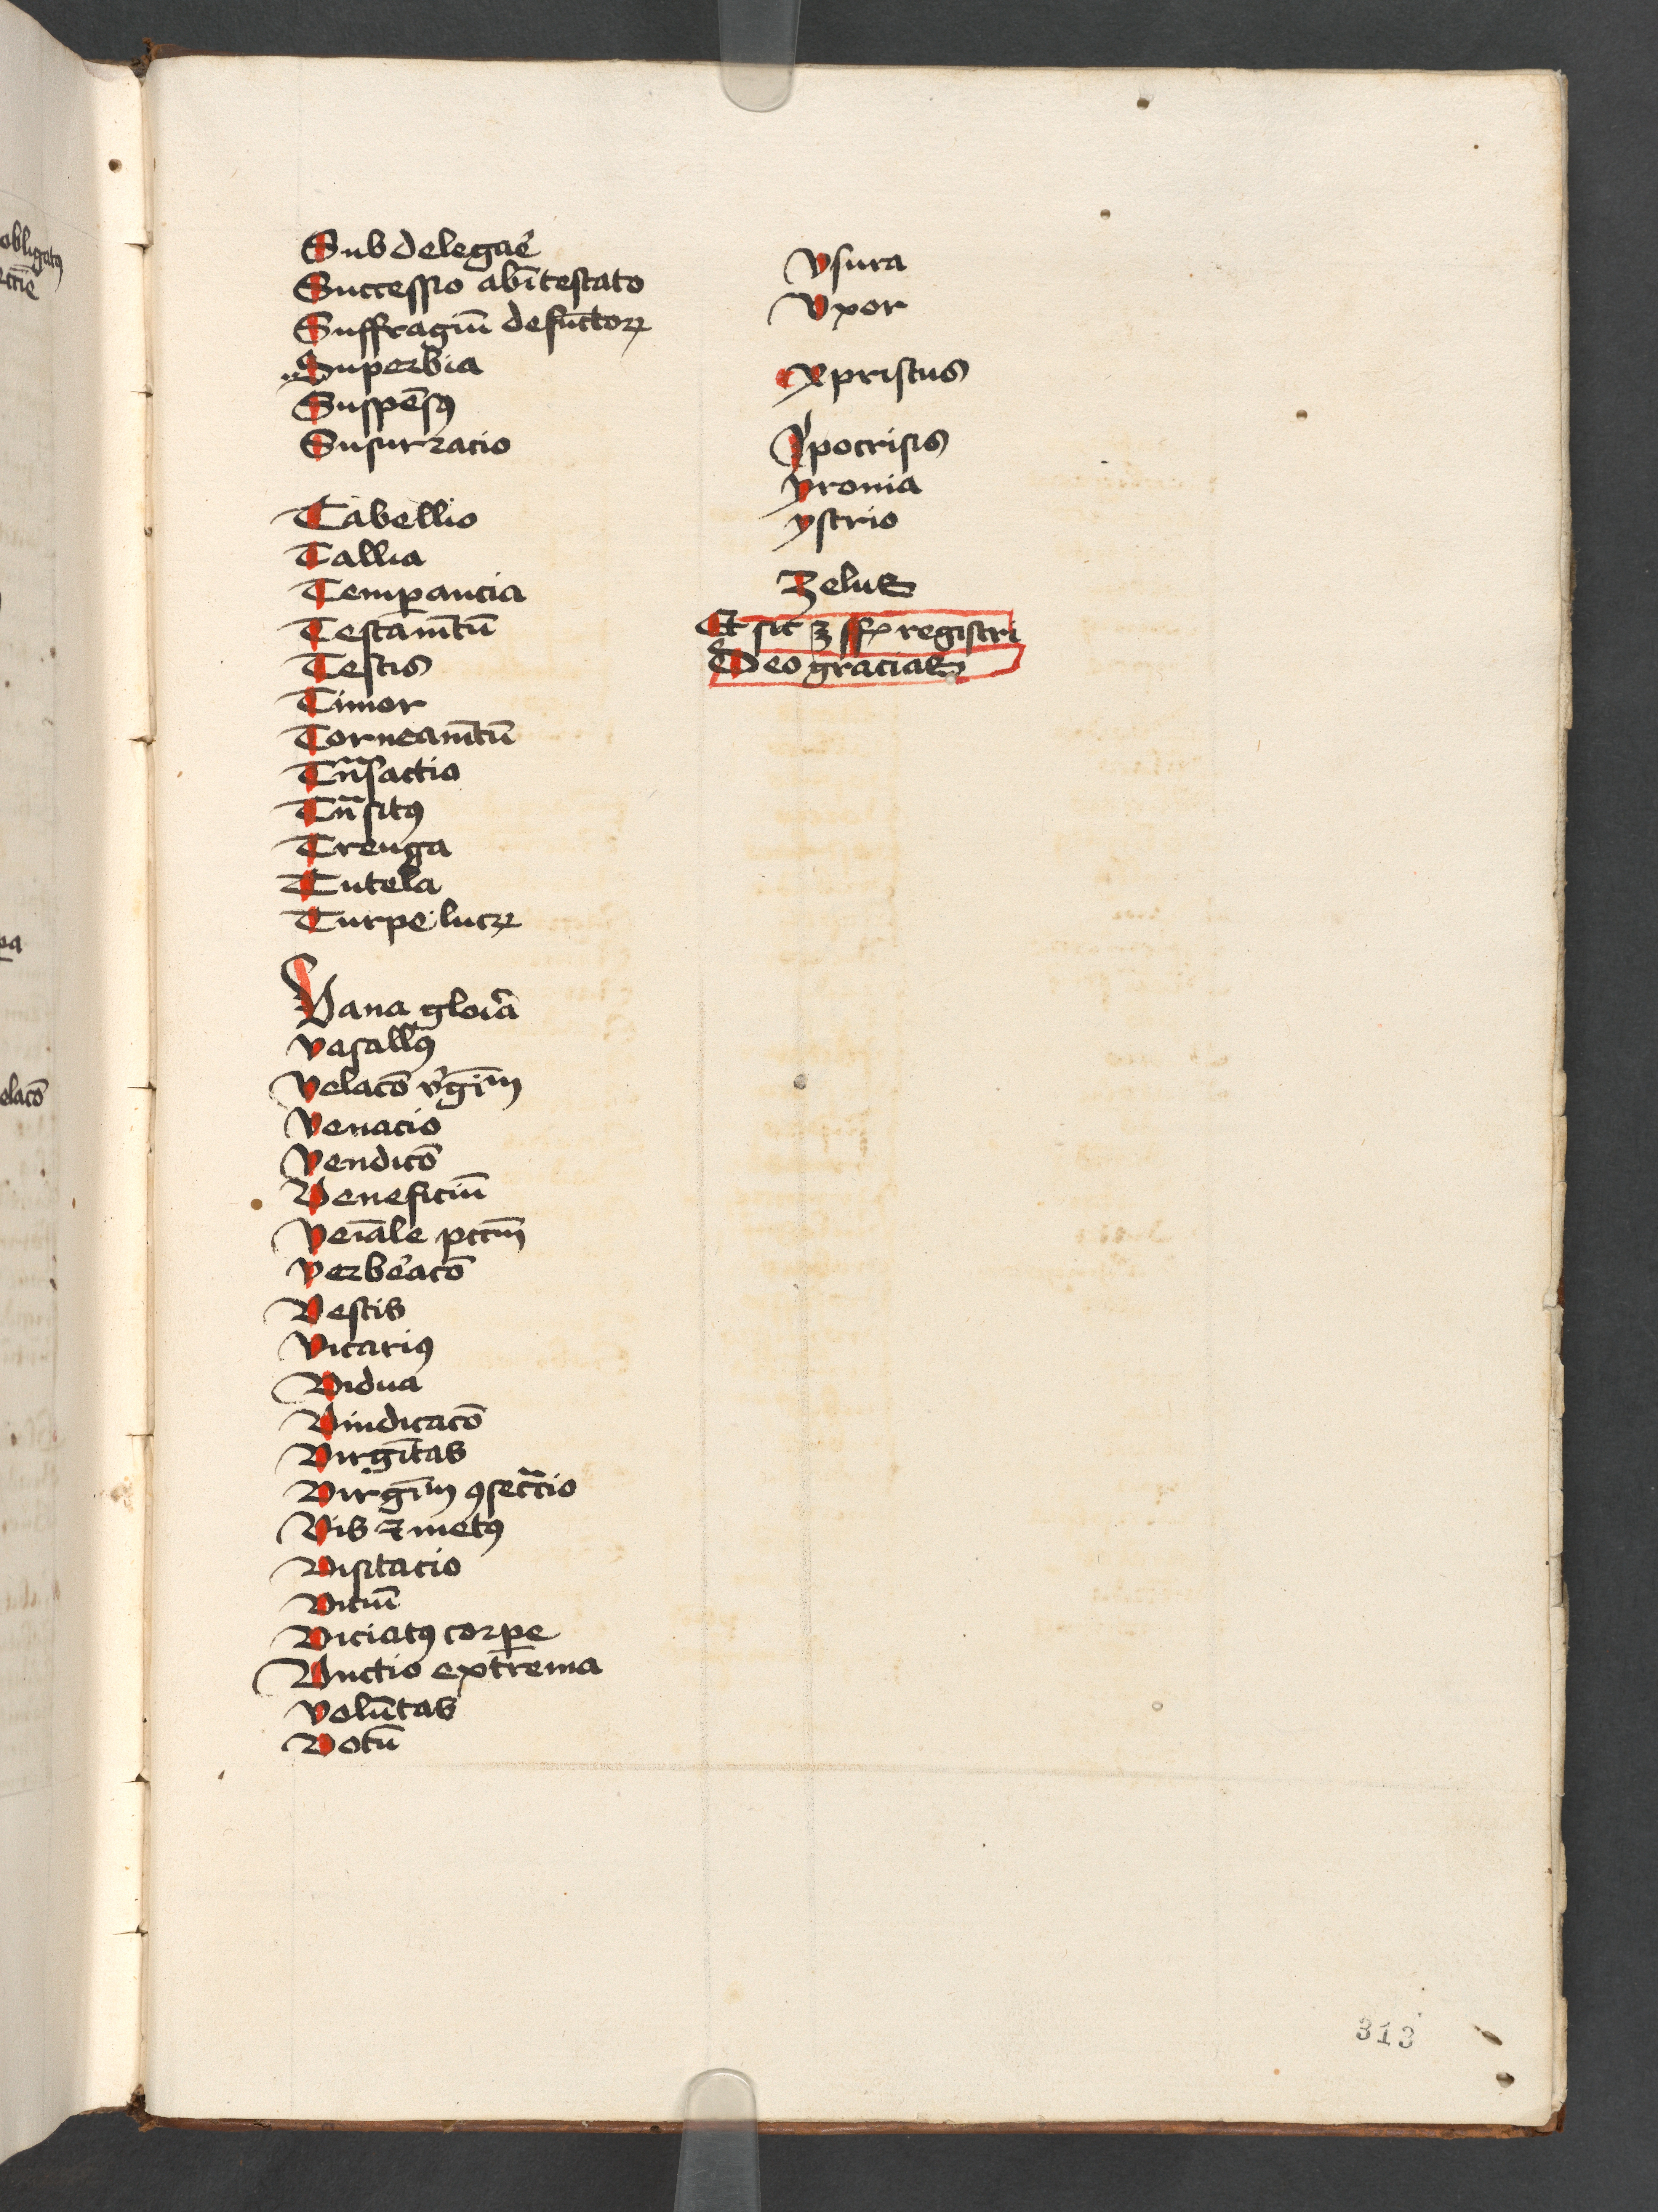 Subdelegare
Successio ab intestato
Suffragiū defūctoꝝ
Superbia
Suspēsꝰ
Susurracio
Tabellio
Tallia
Temꝑancia
Testam̄tū
Testis
Timor
Torneam̄tū
Trn̄sactio
Trn̄sitꝰ
Treuga
Tutela
Turpe lucꝝ
Vana gloria
vasallꝰ
velacō v'gīm
Venacio
Vendicō
Veneficiū
Veiāle pccm̄
verb'acō
Vestis
Vicariꝰ
Vidua
Vindicacō
Virgītas
Virgīm ꝯsecr̄cio
Vis ⁊ metꝰ
Visitacio
Viciū
Viciatꝰ corꝑe
Vnctio extrema
Volūtas
Votū
vsura
Vxor
Xpristus
Ypocrisis
yronia
ystrio
Zelus
Et sic registri
Deo gracias
313
obligatꝰ
elacō